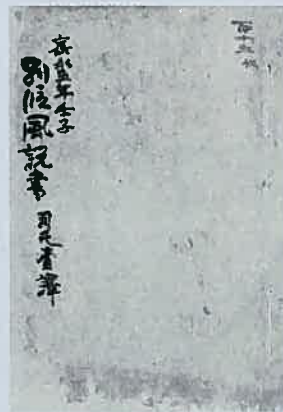 嘉永五年壬子
別段風説書 司天臺譯